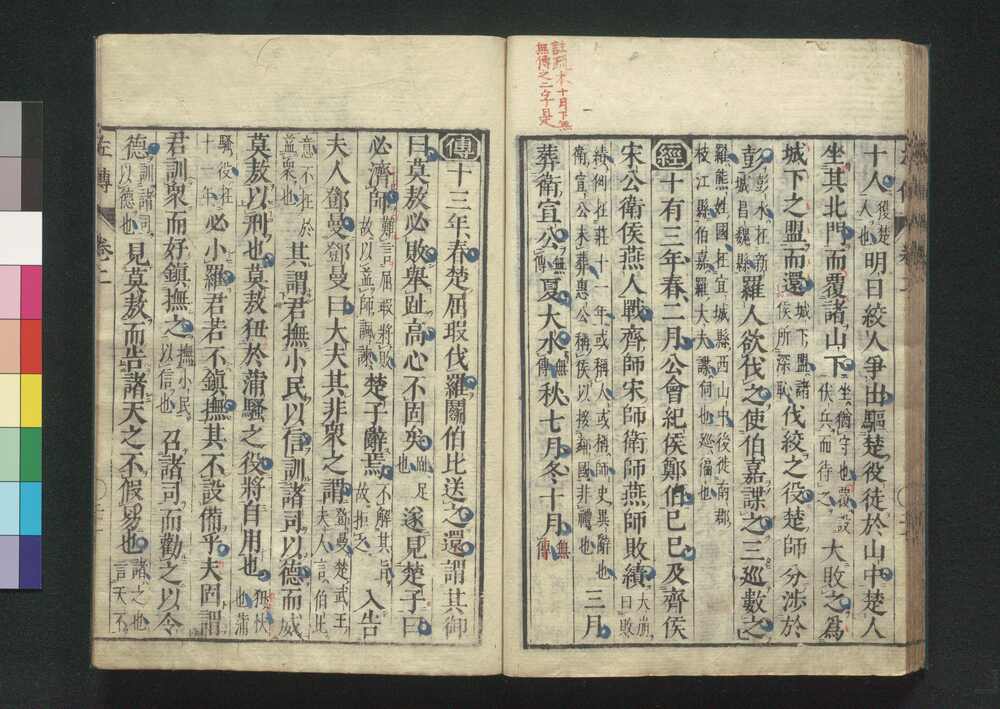 註疏本十月下無
無傳之二字是
十人獲楚人也明日絞人爭出驅楚役徒於山中楚人
坐其北門而覆諸山下坐猶守也覆設伏兵而待之大敗之爲
城下之盟而還城下盟諸侯所深恥伐絞之役楚師分涉於
彭彭水在新城昌魏縣羅人欲伐之使伯嘉諜之三巡數之
羅熊姓國在宜城縣西山中後徙南郡
枝江縣伯嘉羅大夫諜伺也巡徧也
經十有三年春二月公會紀侯鄭伯己巳及齊侯
宋公衛侯燕人戰齊師宋師衛師燕師敗績大崩曰敗
績例在莊十一年或稱人或稱師史異辭也
衛宣公未葬惠公稱侯以接鄰國非禮也三月
葬衛宣公無傳夏大水無傳秋七月冬十月無傳
傳十三年春楚屈瑕伐羅鬭伯比送之還謂其御
曰莫敖必敗舉趾高心不固矣趾足也遂見楚子曰
必濟師難言屈瑕將敗故以益師諷諫楚子辭焉不解其旨故拒之入告
夫人鄧曼鄧曼曰大夫其非衆之謂鄧曼楚武王夫人言伯比
意不在於益衆也其謂君撫小民以信訓諸司以德而威
莫敖以刑也莫敖狃於蒲騷之役將自用也狃忕也蒲
騷役在十一年必小羅君若不鎮撫其不設備乎夫固謂
君訓衆而好鎮撫之撫小民以信也召諸司而勸之以令
德訓諸司以德也見莫敖而告諸天之不假易也諸之也言天不
左傳 卷二